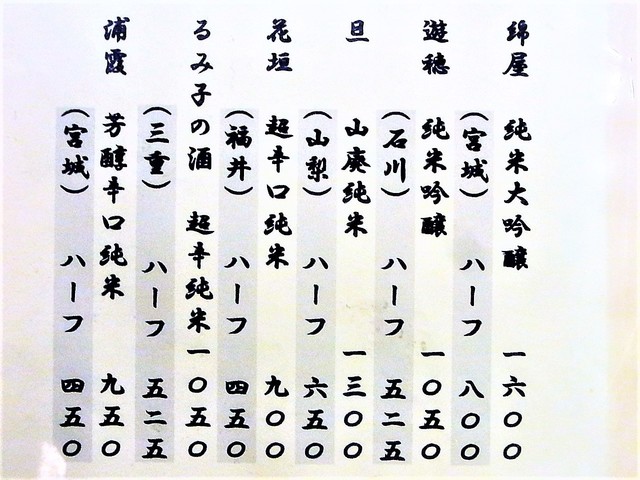 綿屋 純米大吟醸 一六〇〇
(宮城) ハーフ 八〇〇
遊穂 純米吟醸 一〇五〇
(石川) ハーフ 五二五
旦 山廃純米 一三〇〇
(山梨) ハーフ 六五〇
花垣 超辛口純米 九〇〇
(福井) ハーフ 四五〇
るみ子の酒 超辛純米 一〇五〇
(三重) ハーフ 五二五
浦霞 芳醇辛口純米 九五〇
(宮城) ハーフ 四五〇